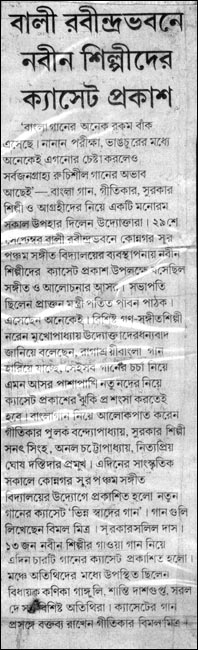 বালী রবীন্দ্রভবনে
নবীন শিল্পীদের
ক্যাসেট প্রকাশ
'বাংলা গানের অনেক রকম বাঁক
এসেছে। নানান পরীক্ষা, ভাঙচুরের মধ্যে
অনেকেই এগনোর চেষ্টা করলেও
সর্বজনগ্রাহ্য রুচিশীল গানের অভাব
আছেই'—বাংলা গান, গীতিকার, সুরকার
শিল্পী ও আগ্রহীদের নিয়ে একটি মনোরম
সকাল উপহার দিলেন উদ্যোক্তারা। ২৯শে
রবীন্দ্রভবনে কোন্নগর সুর
পঞ্চম সঙ্গীত বিদ্যালয়ের ব্যবস্থাপনায় নবীন
শিল্পীদের ক্যাসেট প্রকাশ উপলক্ষে বসেছিল
সঙ্গীত ও আলোচনার আসর। সভাপতি
ছিলেন প্রাক্তন মন্ত্রী পতিত পাবন পাঠক।
এসেছেন অনেকেই। বিশিষ্ট গণ-সঙ্গীতশিল্পী
নরেন মুখোপাধ্যায় উদ্যোক্তাদের ধন্যবাদ
জানিয়ে বলেছেন, রাগাশ্রয়ী বাংলা গান
হারিয়ে যাচ্ছে, সেইসব গানের চর্চা নিয়ে
এমন আসর পাশাপাশি নতুনদের নিয়ে
ক্যাসেট প্রকাশের ঝুঁকি প্রশংসা করতেই
হবে। বাংলা গান নিয়ে আলোকপাত করেন
গীতিকার পুলক বন্দ্যোপাধ্যায়, সুরকার শিল্পী
সনৎ সিংহ, অনল চট্টোপাধ্যায়, নিত্যপ্রিয়
ঘোষ দস্তিদার প্রমুখ। এদিনের সাংস্কৃতিক
সকালে কোন্নগর সুর পঞ্চম সঙ্গীত
বিদ্যালয়ের উদ্যোগে প্রকাশিত হলো নতুন
গানের ক্যাসেট 'ভিন্ন স্বাদের গান'। গানগুলি
লিখেছেন বিমল মিত্র। সুরকার সলিল দাস।
১৩ জন নবীন শিল্পীর গাওয়া গান নিয়ে
এদিন চারটি গানের ক্যাসেট প্রকাশিত হলো।
মঞ্চে অতিথিদের মধ্যে উপস্থিত ছিলেন
বিধায়ক কণিকা গাঙ্গুলি, শান্তি দাশগুপ্ত, সরল
দে সহ বিশিষ্ট অতিথিরা। ক্যাসেটের গান
প্রসঙ্গে বক্তব্য রাখেন গীতিকার বিমল মিত্র।